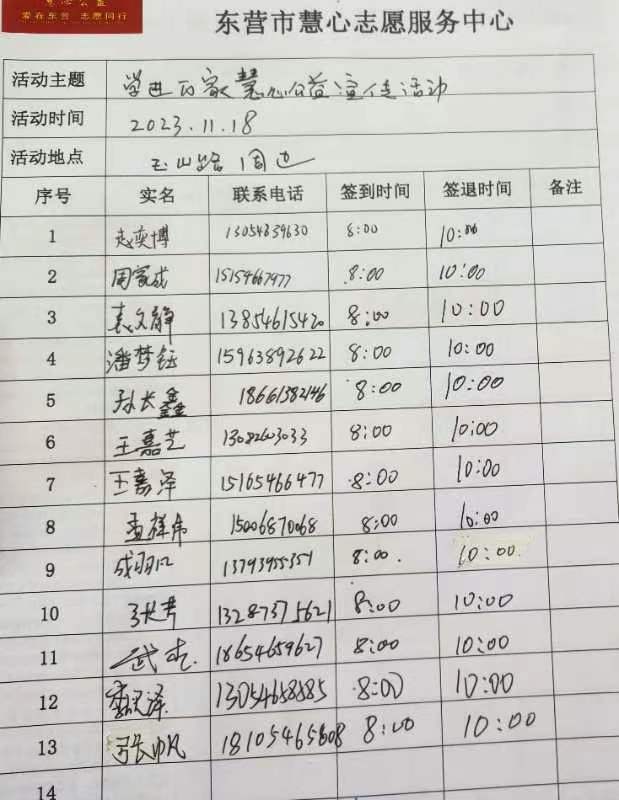 慧心公益
爱在东营 志愿同行
东营市慧心志愿服务中心
活动主题 学进万家慧心公益宣传活动
活动时间 2023.11.18
活动地点 玉山路周边
序号 实名 联系电话 签到时间 签退时间 备注
1 赵奕博 13054839630 8:00 10:00
2 周家成 15154667977 8:00 10:00
3 袁文静 13854615420 8:00 10:00
4 潘梦钰 15963892622 8:00 10:00
5 孙长鑫 18661382146 8:00 10:00
6 王嘉艺 8:00 10:00
7 王嘉泽 15165466477 8:00 10:00
8 孟祥伟 15006870068 8:00 10:00
9 13793955351 8:00. 10:00
10 13287375621 8:00 10:00
11 武杰 18654659627 8:00 10:00
12 13054658885 8:00 10:00
13 张帆 18105465808 8:00 10:00
14